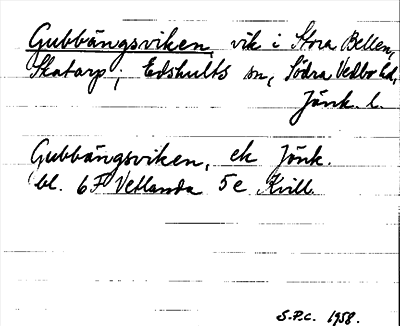 Gubbängsviken, vik i Stora Bellen,
Skatarp; Edshults sn, Södra Vedbo hd,
Jönk. l.
Gubbängsviken, ek Jönk.
bl. 6F Vetlanda 5e Kvill.
S.P.C. 1958.